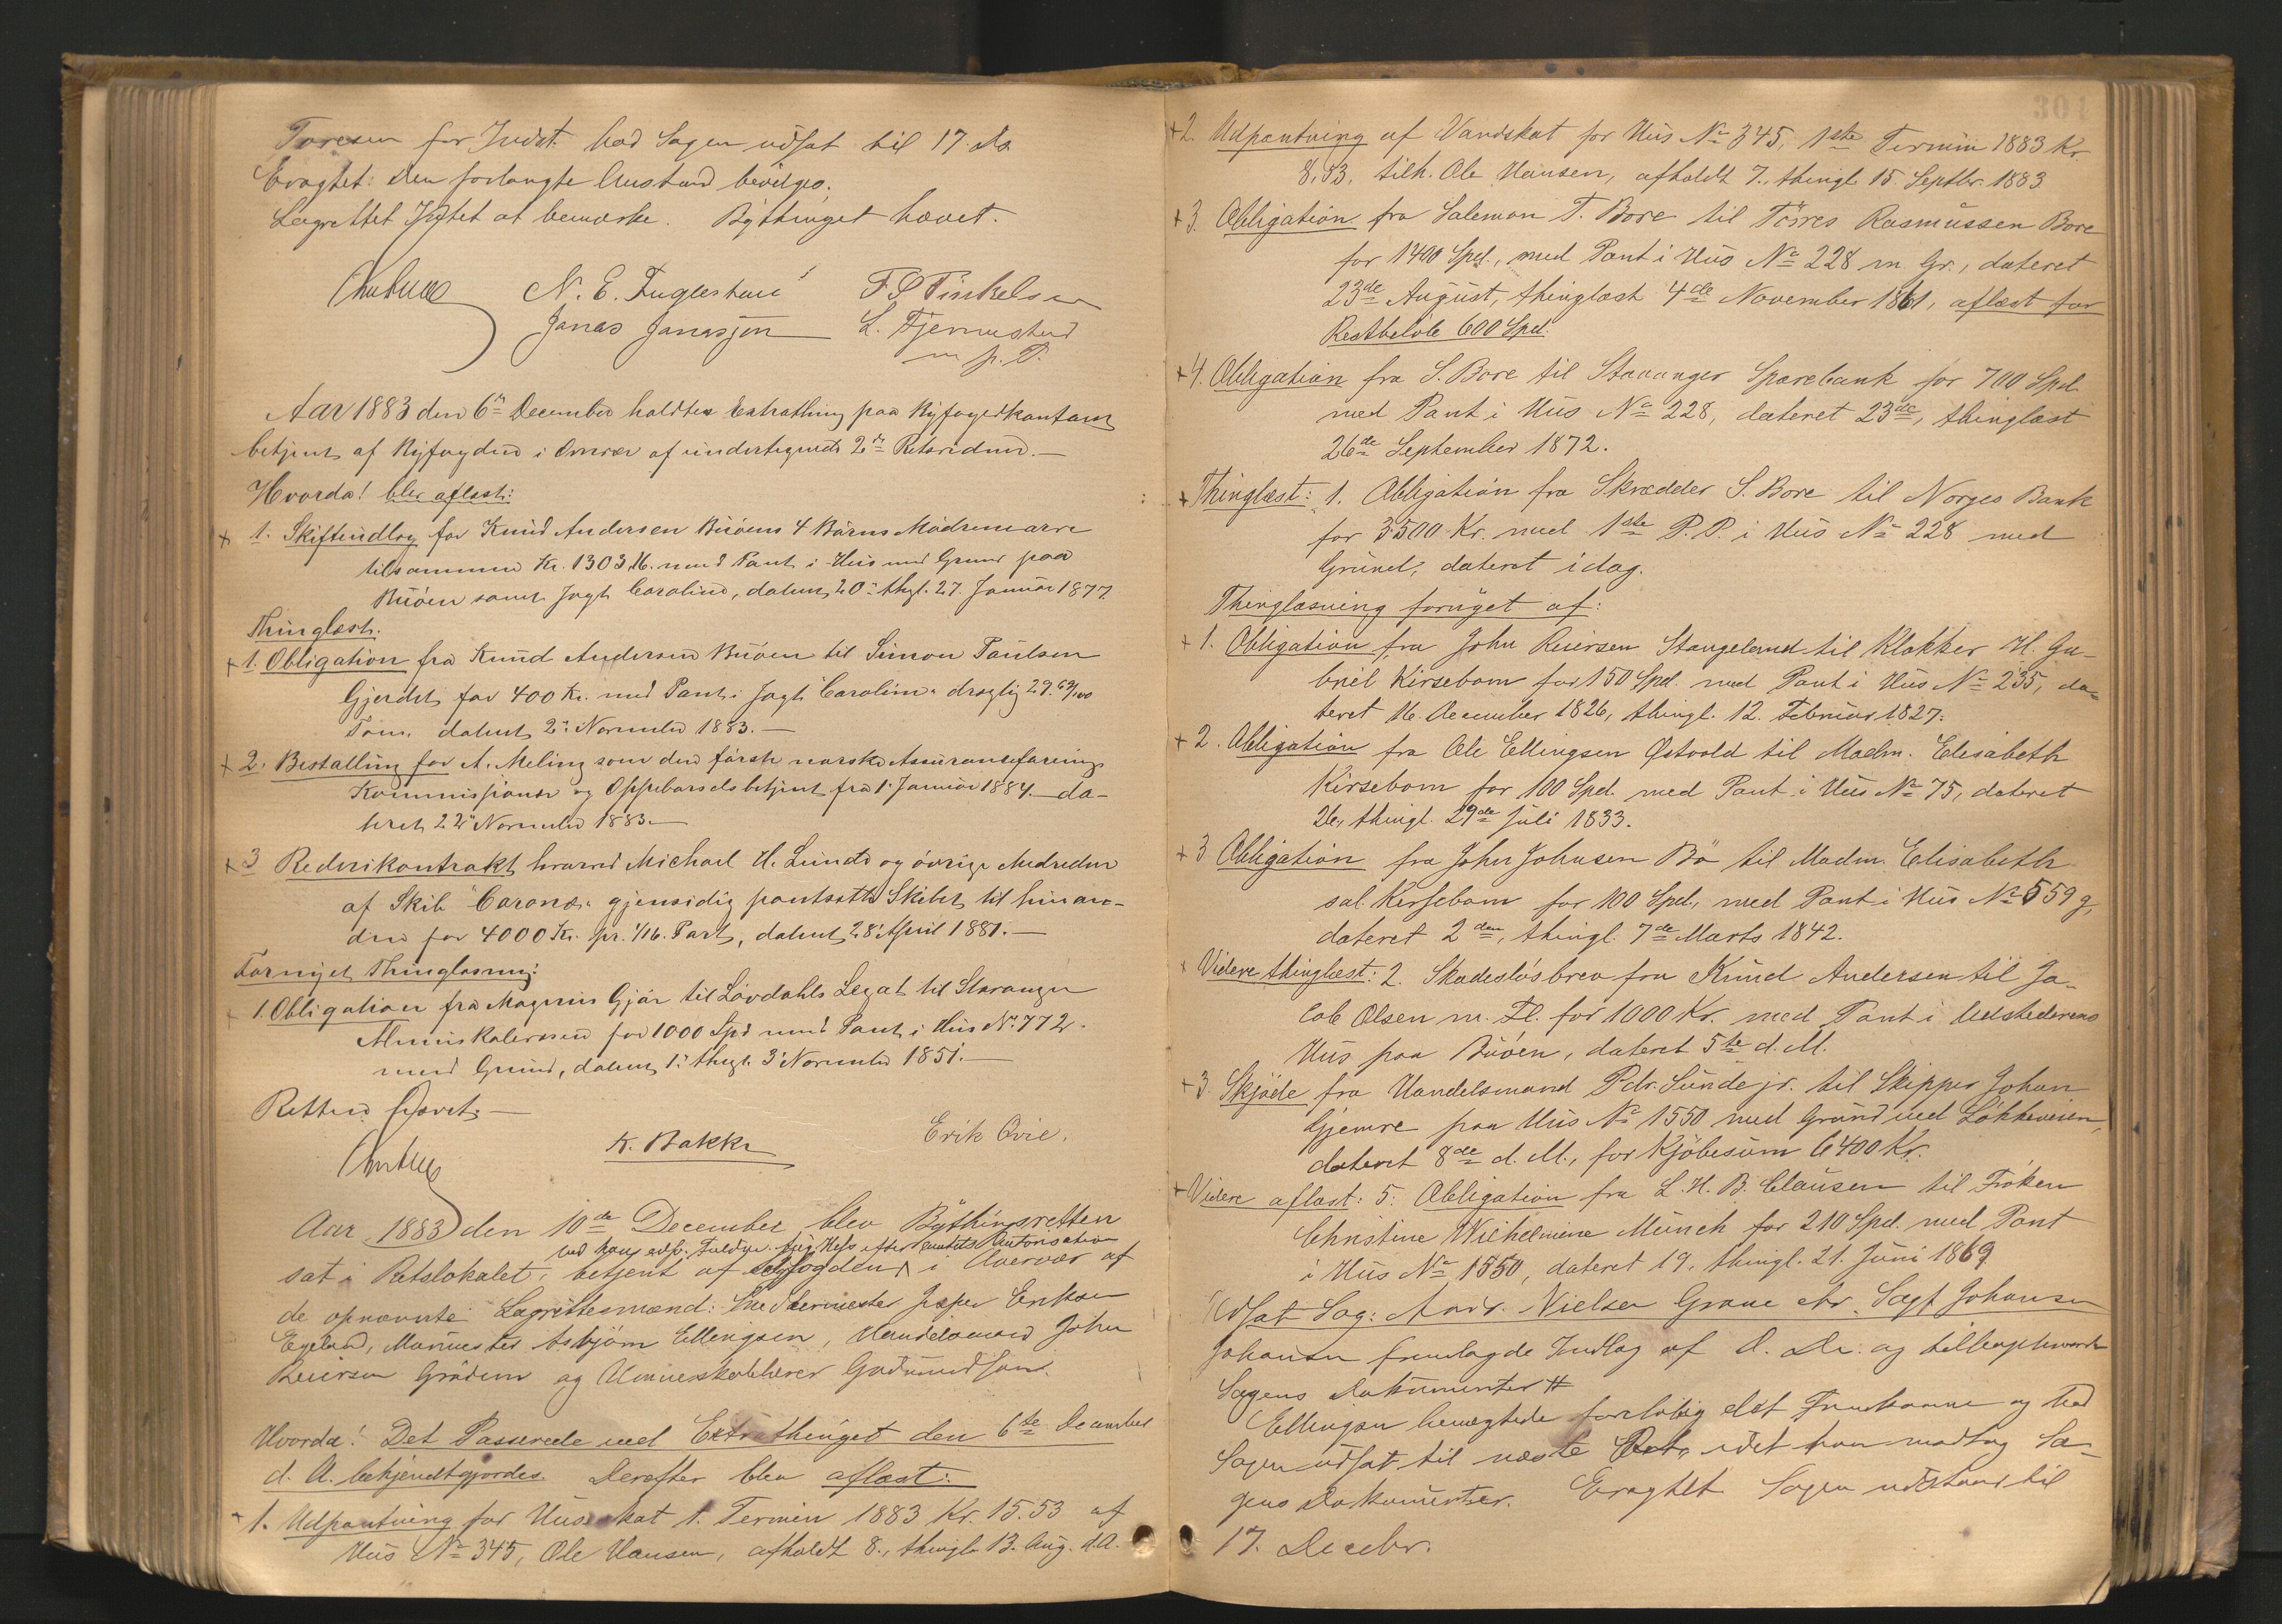 Toresen for Indst. bad Sagen udsat til 17. ds.
Eragtet: Den forlangte Anstand bevilges.
Lagrettet Intet at bemærke. Bythinget hævet.
N. E. Fuglestad F. S. Tinkelsen
Jonas Jonassen L. Tjemsted
m. p. P.
Aar 1883 den 6te December holdtes Extrathing paa Byfogedkontoret
betjent af Byfogden i Overvær af undertegnede 2de Retsvidner.—
Hvorda! blev aflæst:
+ 1. Skifteudlæg for Knud Andersen Buöens 4 Börns Mödrenearv
tilsammen Kr. 1303,16. med Pant i Hus med Grund paa
Buöen samt Jagt Caroline, dateret 20de thgl. 27. Januar 1877.
Thinglæst.
+ 1. Obligation fra Knud Andersen Buöen til Simon Paulsen
Gjerdet for 400 Kr. med Pant i Jagt "Caroline" drægtig 29.69/100
Tons. dateret 2de November 1883.—
+ 2. Bestalling for A. Meling som den förste norske Assuranceforenings
Kommissionær og Oppebørselsbetjent fra 1. Januar 1884. da-
teret 22de November 1883.—
+ 3 Rederikontrakt hvorved Michael H. Lunde og övrige Medredere
af Skib "Corona" gjensidig pantsætte Skibet til hinan-
den for 4000 Kr. pr. 1/16. Part, dateret 28 April 1881.—
Fornyet Thinglæsning:
1. Obligation fra Magnus Gjör til Lövdahls Legat til Stavanger
Almueskolevæsen for 1000 Spd med Pant i Hus No. 772.
med Grund, dateret 1. thgl. 3 November 1851.—
Retten hævet.—
K. Bakke Erik Qvie.
Aar 1883 den 10de December blev Bythingsretten
ved hans edsv. Fuldm. Hess efter Amtets Autorisation
sat i Retslokalet, betjent af Byfogden i Overvær af
de opnævnte Lagrettesmænd: Snedkermester Jesper Eriksen
Egeland, Murmester Asbjörn Ellingsen, Handelsmand John
Reiersen Grödem og Almueskolelærer Gudmundsen.
Hvorda! Det Passerede ved Extrathinget den 6te December
d. A. bekjendtgjordes. Derefter blev aflæst:
+ 1. Udpantning for Husskat 1. Termin 1883 Kr. 15.53 af
Hus No 345, Ole Hansen, afholdt 8., thingl. 13. Aug. d. A.
301
+ 2. Udpantning af Vandskat for Hus No 345, 1ste Termin 1883 Kr
8,83, tilh. Ole Hansen, afholdt 7., thingl. 15. Septbr. 1883
+ 3. Obligation fra Salemon T. Bore til Törres Rasmussen Bore
for 1400 Spd., med Pant i Hus No 228 m. Gr., dateret
23de August, thinglæst 4de November 1861, aflæst for
Restbelöb 600 Spd.
+ 4. Obligation fra S. Bore til Stavanger Sparebank for 700 Spd.
med Pant i Hus No 228, dateret 23de, thinglæst
26de September 1872.
+ Thinglæst: 1. Obligation fra Skrædder S. Bore til Norges Bank
for 3500 Kr. med 1ste P. P. i Hus No 228 med
Grund, dateret i dag.
Thinglæsning fornyet af:
+ 1. Obligation fra John Reiersen Stangeland til Klokker H. Ga-
briel Kirsebom for 150 Spd. med Pant i Hus No 235, da-
teret 16 December 1826, thingl. 12. Februar 1827.
+ 2. Obligation fra Ole Ellingsen Østvold til Madm. Elisabeth
Kirsebom for 100 Spd. med Pant i Hus No 75, dateret
26, thingl. 29de Juli 1833.
+ 3 Obligation fra John Johnsen Bö til Madm. Elisabeth
sal. Kirsebom for 100 Spd., med Pant i Hus No 559 g,
dateret 2den, thingl. 7de Marts 1842.
+ Videre thinglæst: 2. Skadeslösbrev fra Knud Andersen til Ja-
cob Olsen m. Fl. for 1000 Kr. med Pant i Udstederens
Hus paa Buöen, dateret 5te d. M.
+ 3. Skjöde fra Handelsmand Pdr. Sunde jr. til Skipper Johan
Gjemre paa Hus No 1550 med Grund ved Lökkeveien,
dateret 8de d. M., for Kjöbesum 6400 Kr.
+ Videre aflæst: 5. Obligation fra L. H. B. Clausen til Fröken
Christine Wilhelmine Münch for 210 Spd. med Pant
i Hus No 1550, dateret 19. thingl. 21. Juni 1869
Udsat Sag: Andr. Nielsen Grane ctr. Sagf Johansen
Johansen fremlagde Indlæg af D. D. og tilbageleverede
Sagens Dokumenter #
Ellingsen benegtede foreløbig det Fremkomne og bad
Sagen udsat til næste Ret, idet han modtog Sa-
gens Dokumenter. Eragtet Sagen udstaar til
17. Decebr.